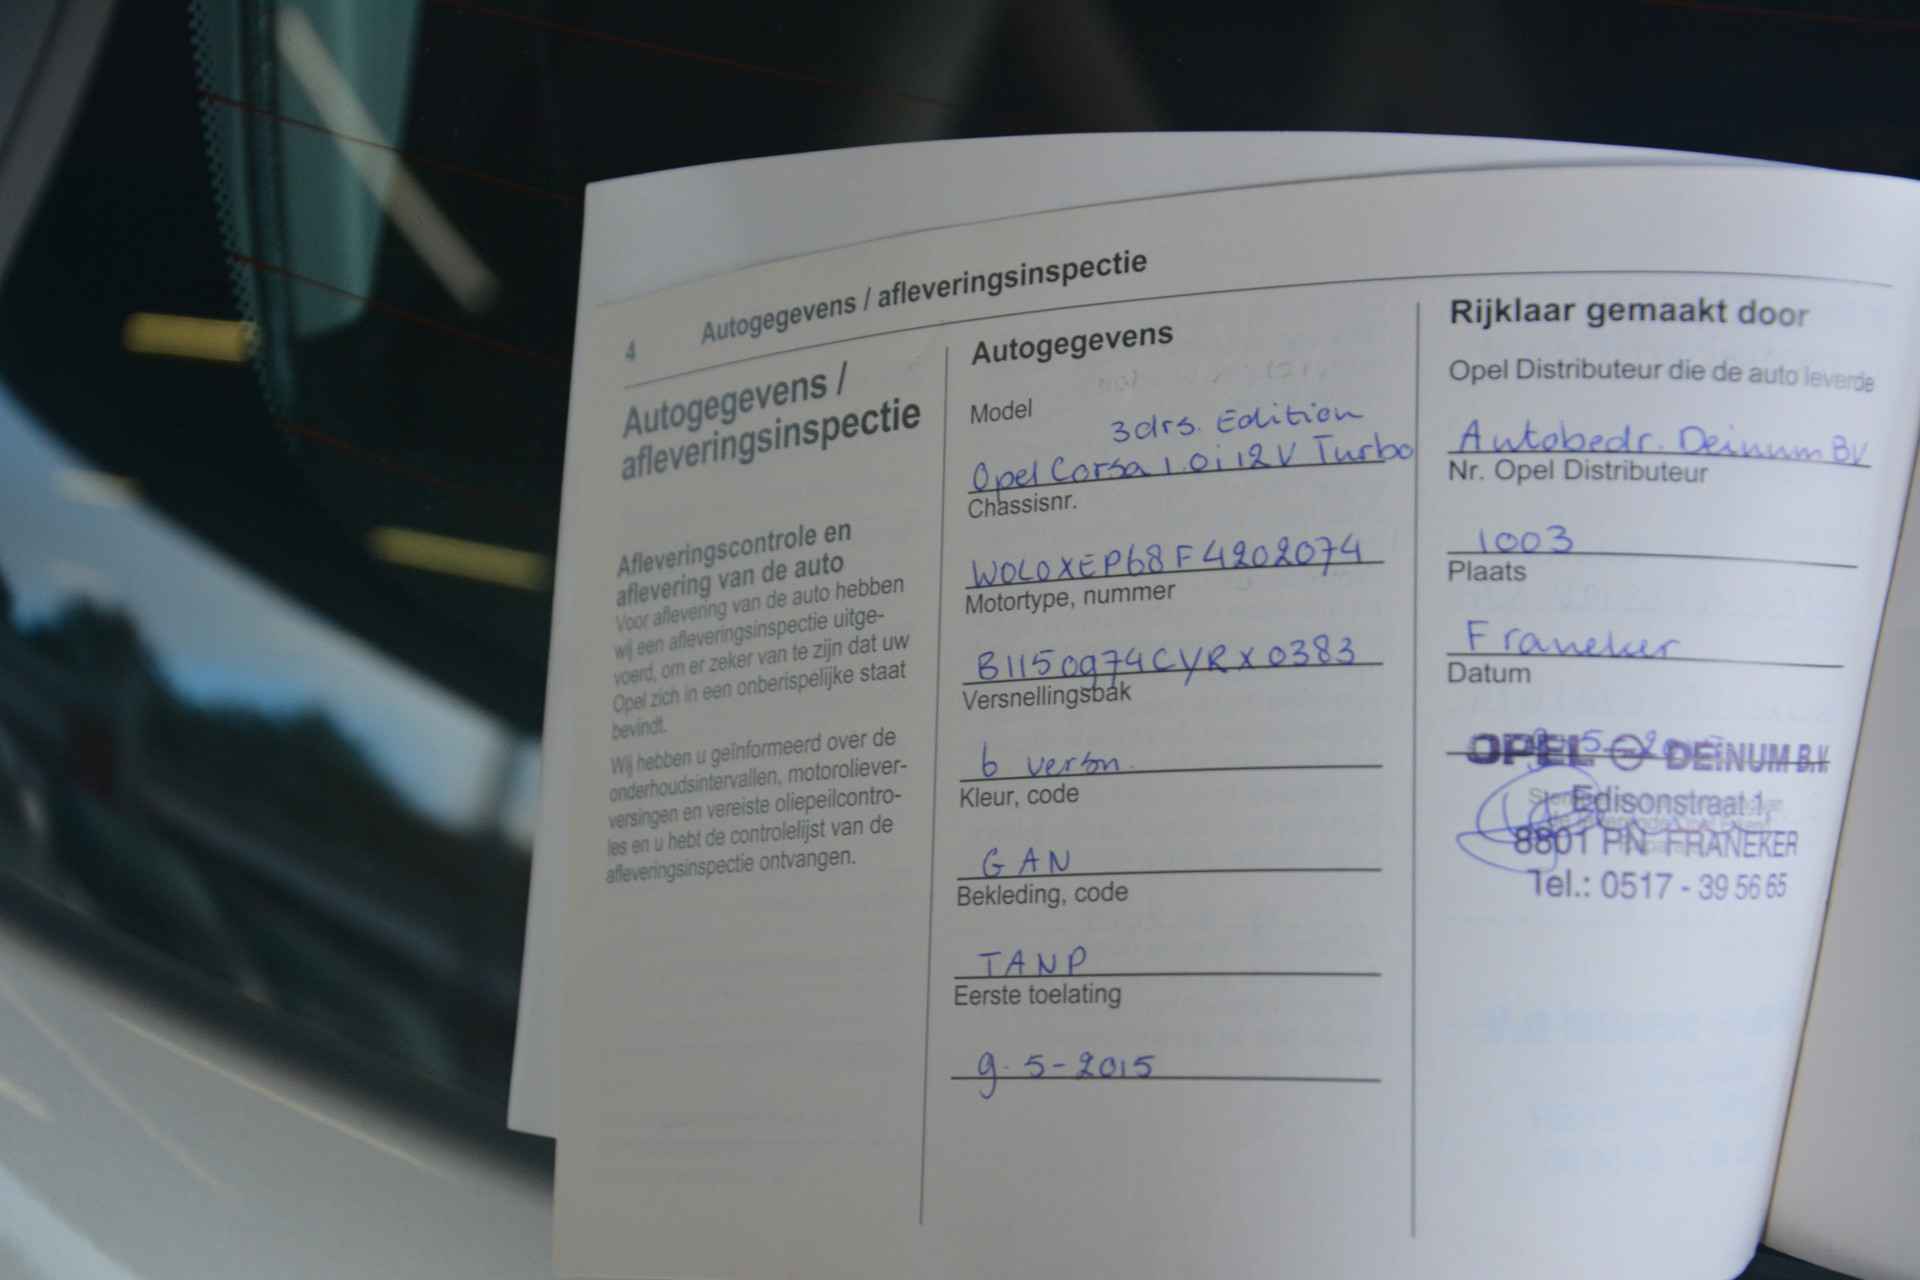 4 Autogegevens / afleveringsinspectie
Autogegevens /
afleveringsinspectie
Afleveringscontrole en
aflevering van de auto
Voor aflevering van de auto hebben
wij een afleveringsinspectie uitge-
voerd, om er zeker van te zijn dat uw
Opel zich in een onberispelijke staat
bevindt.
Wij hebben u geïnformeerd over de
onderhoudsintervallen, motoroliever-
versingen en vereiste oliepeilcontro-
les en u hebt de controlelijst van de
afleveringsinspectie ontvangen.
Autogegevens
Model
3drs. Edition
Opel Corsa 1.0i 12V Turbo
Chassisnr.
W0L0XEP68F4202074
Motortype, nummer
B1150974CYRX0383
Versnellingsbak
6 versn.
Kleur, code
GAN
Bekleding, code
TANP
Eerste toelating
9-5-2015
Rijklaar gemaakt door
Opel Distributeur die de auto leverde
Autobedr. Deinum BV
Nr. Opel Distributeur
1003
Plaats
Franeker
Datum
OPEL DEINUM B.V.
Edisonstraat 1
8801 PN FRANEKER
Tel.: 0517 - 39 56 65